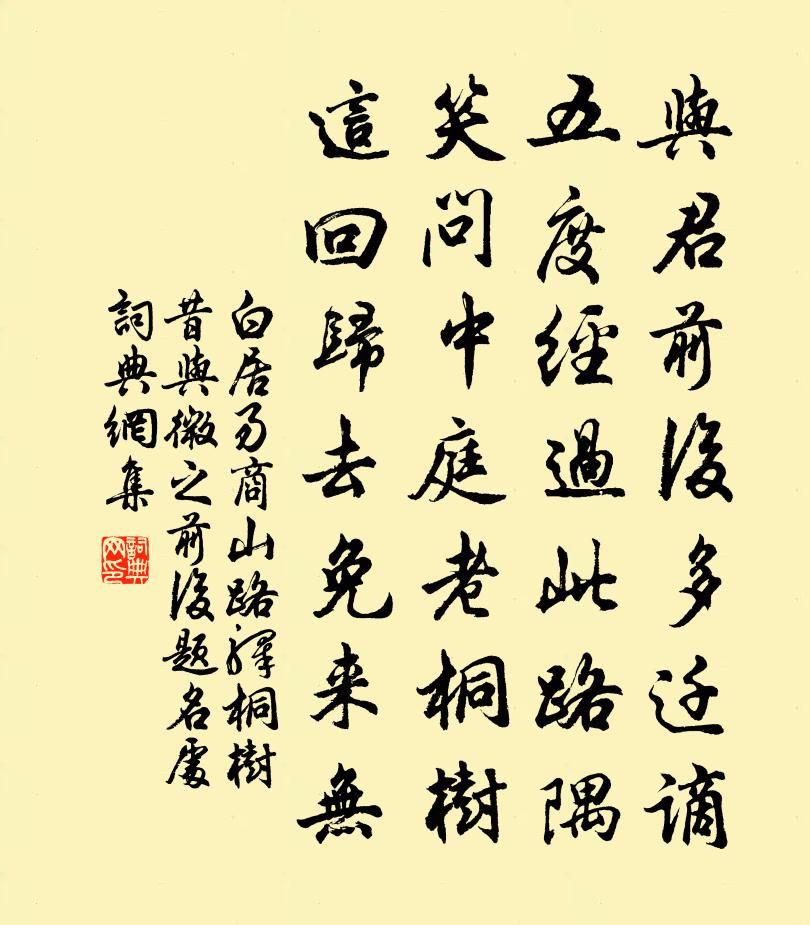 與君前後多迁謫
五度經過此路隅
笑問中庭老桐樹
這回歸去免来無
白居易商山路驛桐樹
昔與微之前後題名處
詞典網集
詞典
网印